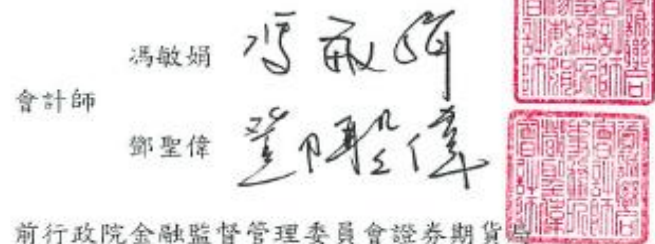 馮敏娟 馮敏娟
會計師
鄧聖偉 鄧聖偉
前行政院金融監督管理委員會證券期貨局